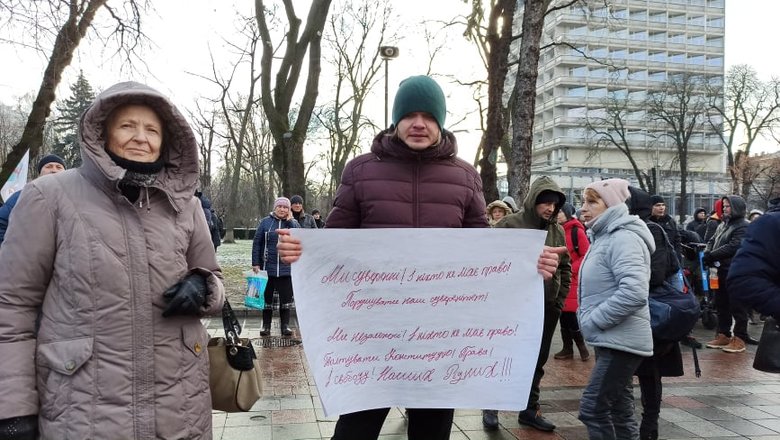 Ми суверенні! І ніхто не має право!
Порушувати наш суверенітет!
Ми незалежні! І ніхто не має право!
Топтувати Конституцію! Права!
І свободу! Наших Рідних!!!